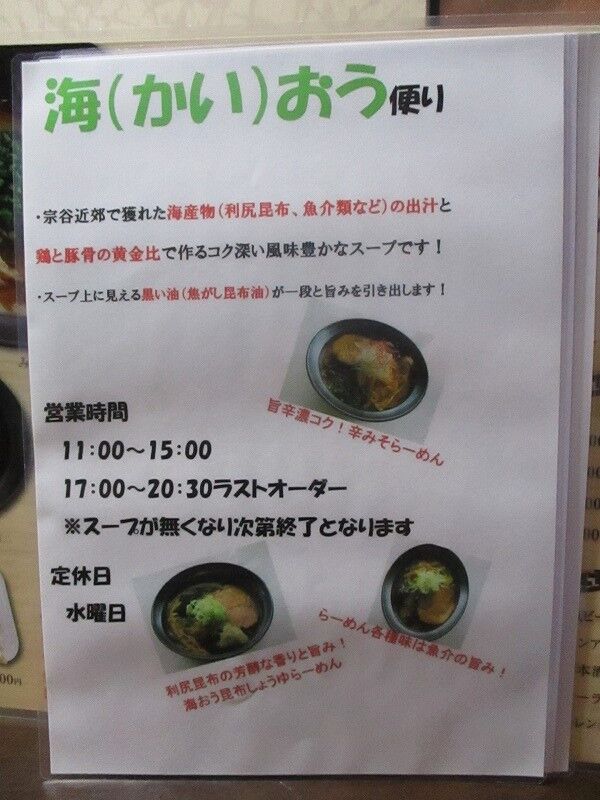 海(かい)おう便り
・宗谷近郊で獲れた海産物(利尻昆布、魚介類など)の出汁と
鶏と豚骨の黄金比で作るコク深い風味豊かなスープです!
・スープ上に見える黒い油(焦がし昆布油)が一段と旨みを引き出します!
旨辛濃コク!辛みそらーめん
営業時間
11:00～15:00
17:00～20:30ラストオーダー
※スープが無くなり次第終了となります
定休日
水曜日
らーめん各種味は魚介の旨み!
利尻昆布の芳醇な香りと旨み!
海おう昆布しょうゆらーめん